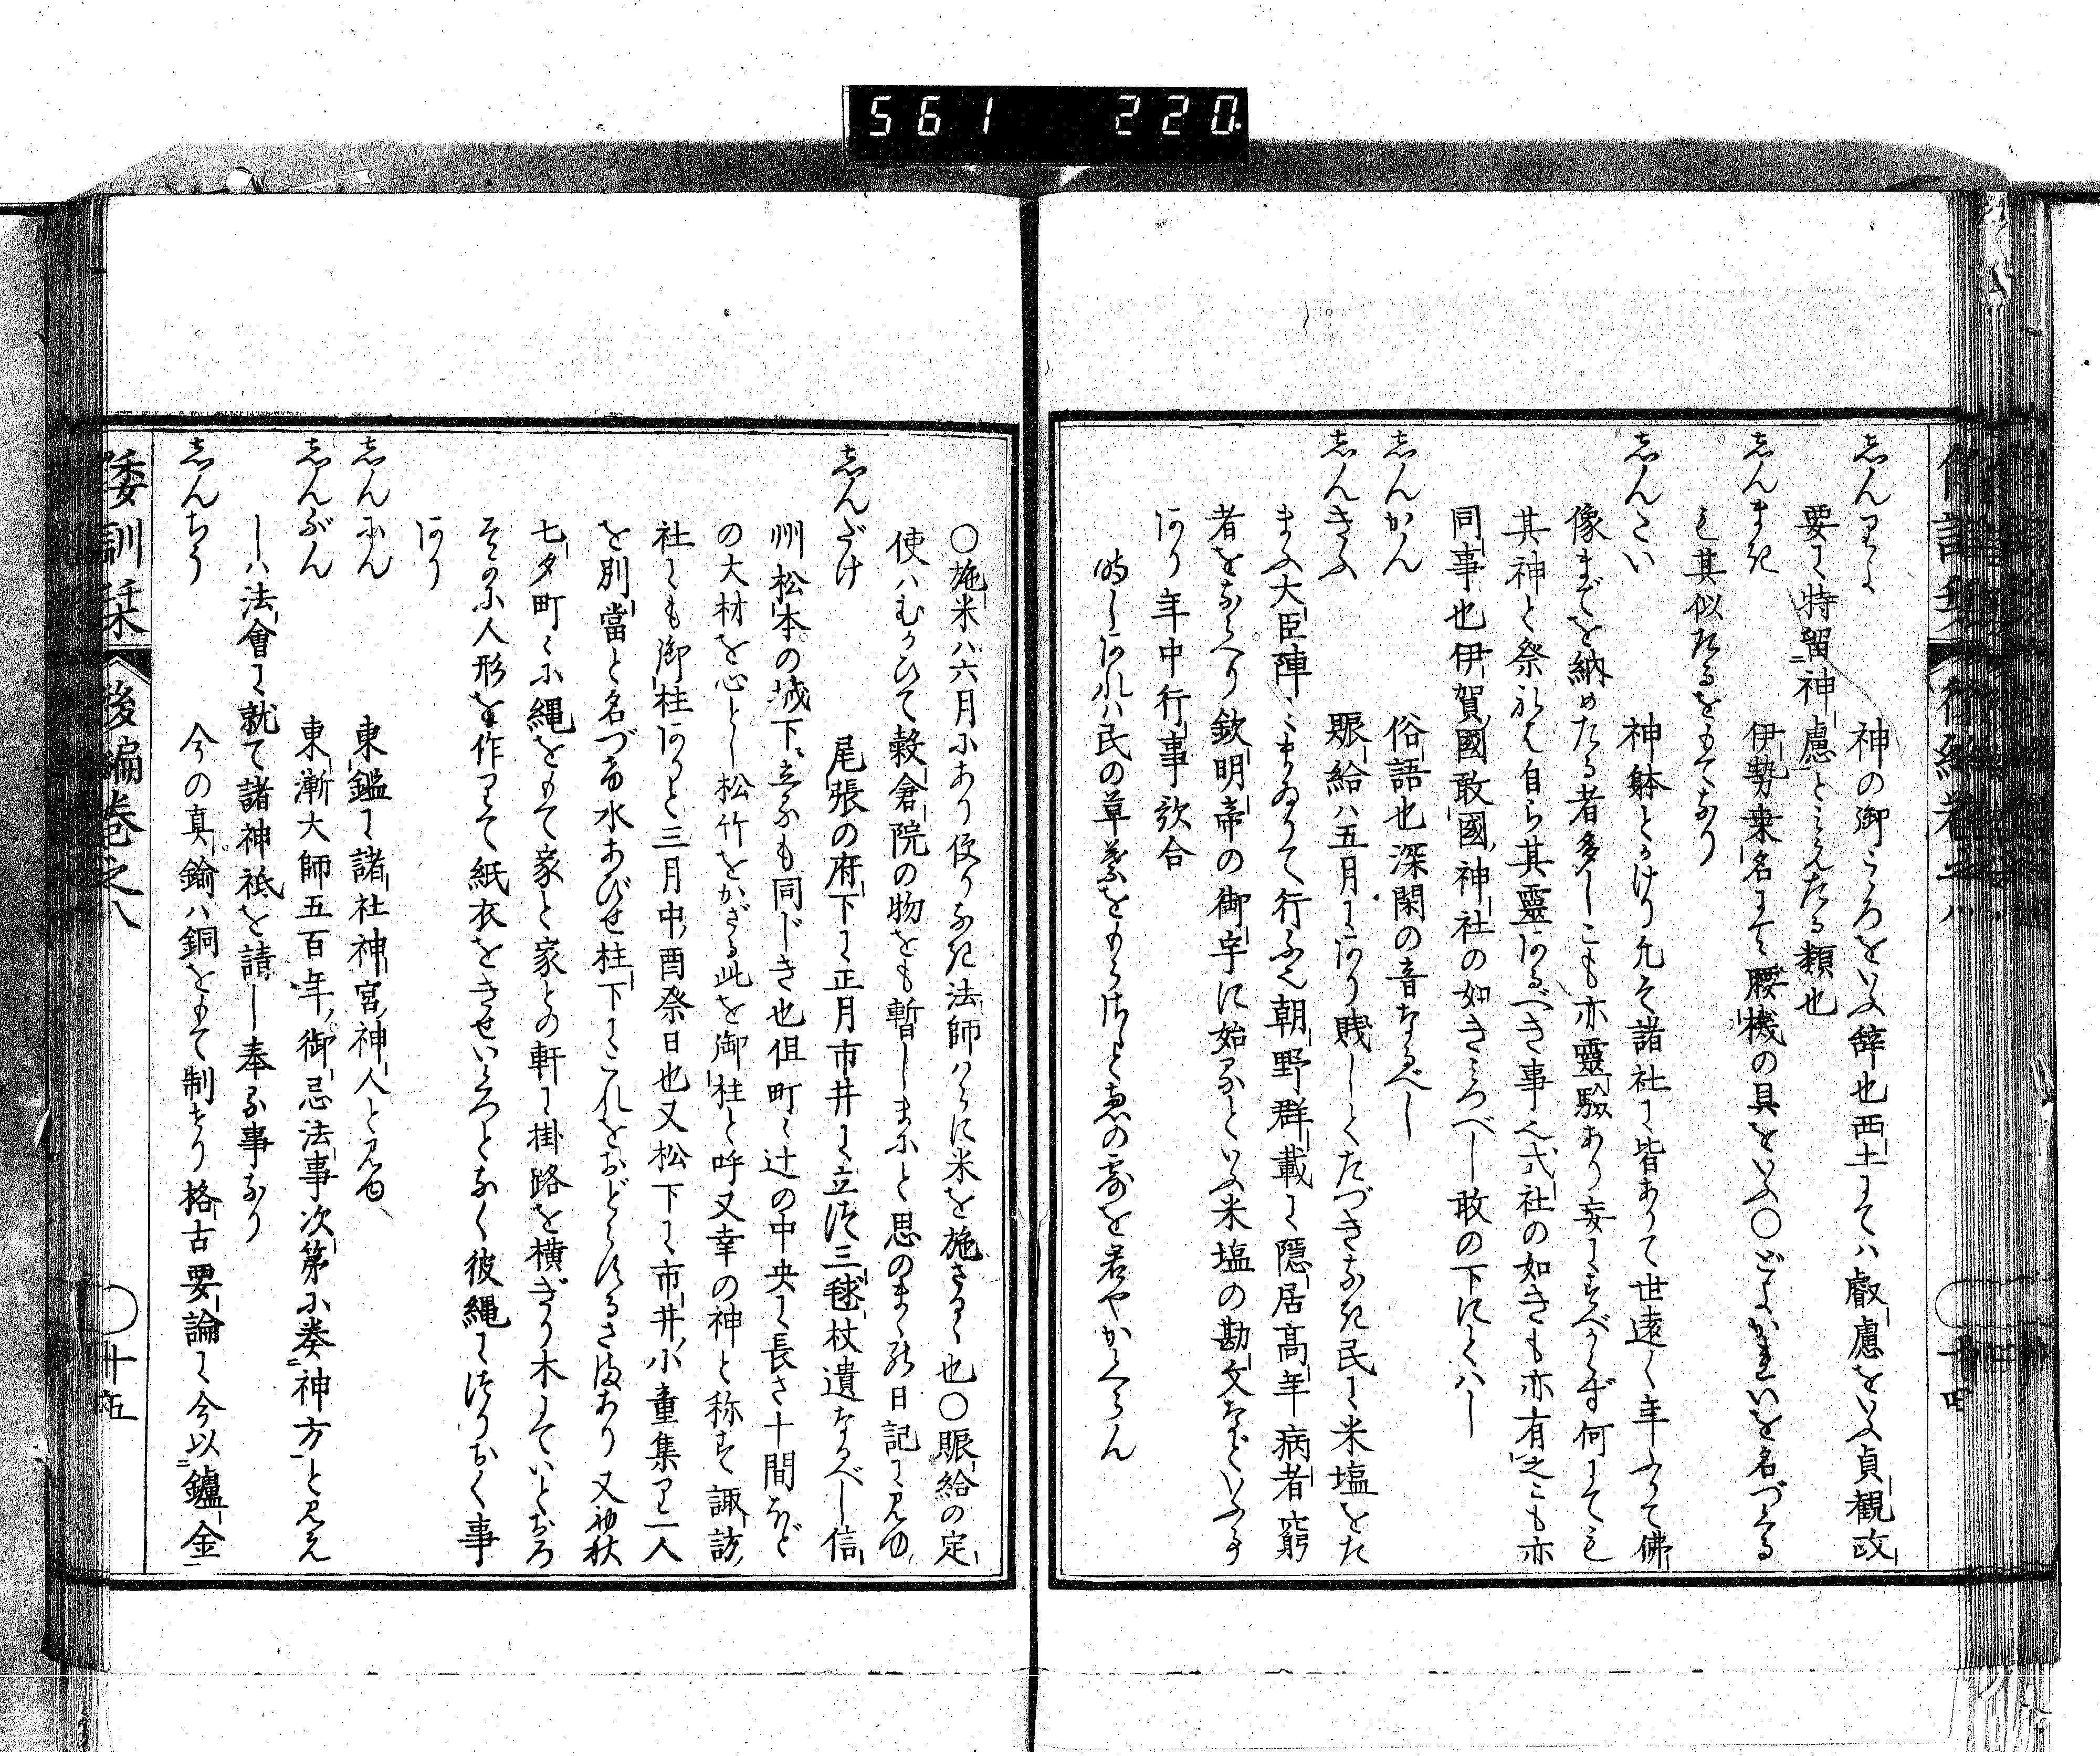 561 220
倭訓栞 後編巻之八 十四
志んりよ 神の御こゝろをいふ辞也西土にてハ叡慮をいふ貞観政
要に特留神慮とみえたる類也
志んまき 伊勢来名にて腰機の具をいふ〇どよかまいを名づくる
も其似たるをもてなり
志んたい 神躰とかけり凡そ諸社に皆ありて世遠く年ふりて佛
像までを納めたる者多しこも亦靈驗あり妄にすべからず何にても
其神と祭れハ自ら其靈あるべき事也式社の如きも亦有之こも亦
同事也伊賀國敢國神社の如きみつべし敢の下にくはし
志んかん 俗語也深閑の音なるべし
志んきふ 賑給ハ五月にあり賎しくたづきなき民に米塩をた
まふ大臣陣にまゐりて行ふ也朝野群載に隠居高年病者窮
者をあらへり欽明帝の御宇に始るといふ米塩の勘文などいふ事
あり年中行事歌合
時しあれハ民の草葉をもらさしと恵の露を君やかくらん
〇施米ハ六月にあり便りなき法師ハらに米を施さるゝ也〇賑給の定
使ハむかひて穀倉院の物をも暫しまにと思のまゝの日記に見ゆ
志んだけ 尾張の府下に正月市井に立つ三毬杖遺なるべし信
州松本の城下に立るも同じき也但町々辻の中央に長さ十間ほど
の大材を心とし松竹をかざる此を御柱と呼又幸の神と称す諏訪
社にも御柱ありと三月中酉祭日也又松下に市井小童集り一人
を別當と名づゐ水あびせ柱下にこれををどらするさまあり又初秋
七夕町々に縄をもて家と家との軒に掛路を横ぎり木にていとおろ
そかに人形を作りて紙衣をきせいくつとなく彼縄につりおく事
あり
志んにん 東鑑に諸社神宮神人と見ゆ
志んぶん 東漸大師五百年御忌法事次第に奏神方と見え
しハ法會に就て諸神祇を請し奉る事なり
志んちう 今の真鍮ハ銅をもて制せり格古要論に今以鑪金
倭訓栞 後編巻之八 十五